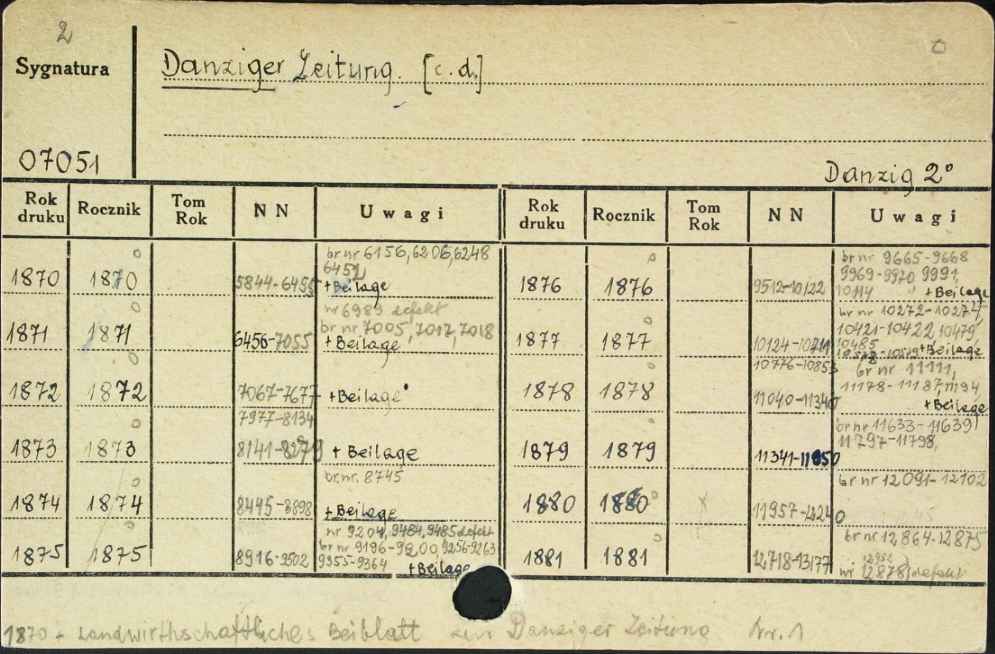 2
Sygnatura
Danziger Zeitung. [c.d.]
07051
Danzig 2°
Rok druku Rocznik Tom Rok NN Uwagi Rok druku Rocznik Tom Rok NN Uwagi
br nr 6156, 6206, 6248
6451
1870 1870 5844-6455 +Beilage
nr 6989 defekt
br nr 7005, 7017, 7018
1871 1871 6456-7055 +Beilage
1872 1872 7067-7677 +Beilage
7977-8134
1873 1873 +Beilage
br nr. 8745
1874 1874 8445-8898 +Beilage
nr 9204, 9484, 9485 defekt
br nr 9196-9200, 9256-9263
1875 1875 8916-9502 9355-9364 +Beilage
br nr 9665-9668
9969-9970 9991,
1876 1876 9512-10122 10114 +Beilage
br nr 10272-10274,
10421-10422, 10479,
10485
1877 1877 +Beilage
10776-10853
br nr 11111,
1878 1878 11040-11340
+Beilage
br nr 11633-11639
11797-11798,
1879 1879
br nr 12091-12102
1880 1880
br nr 12864-12875
1881 1881 12718-13177
nr 12878 defekt
1870 + Landwirthschaftliches Beiblatt zur Danziger Zeitung Nr. 1